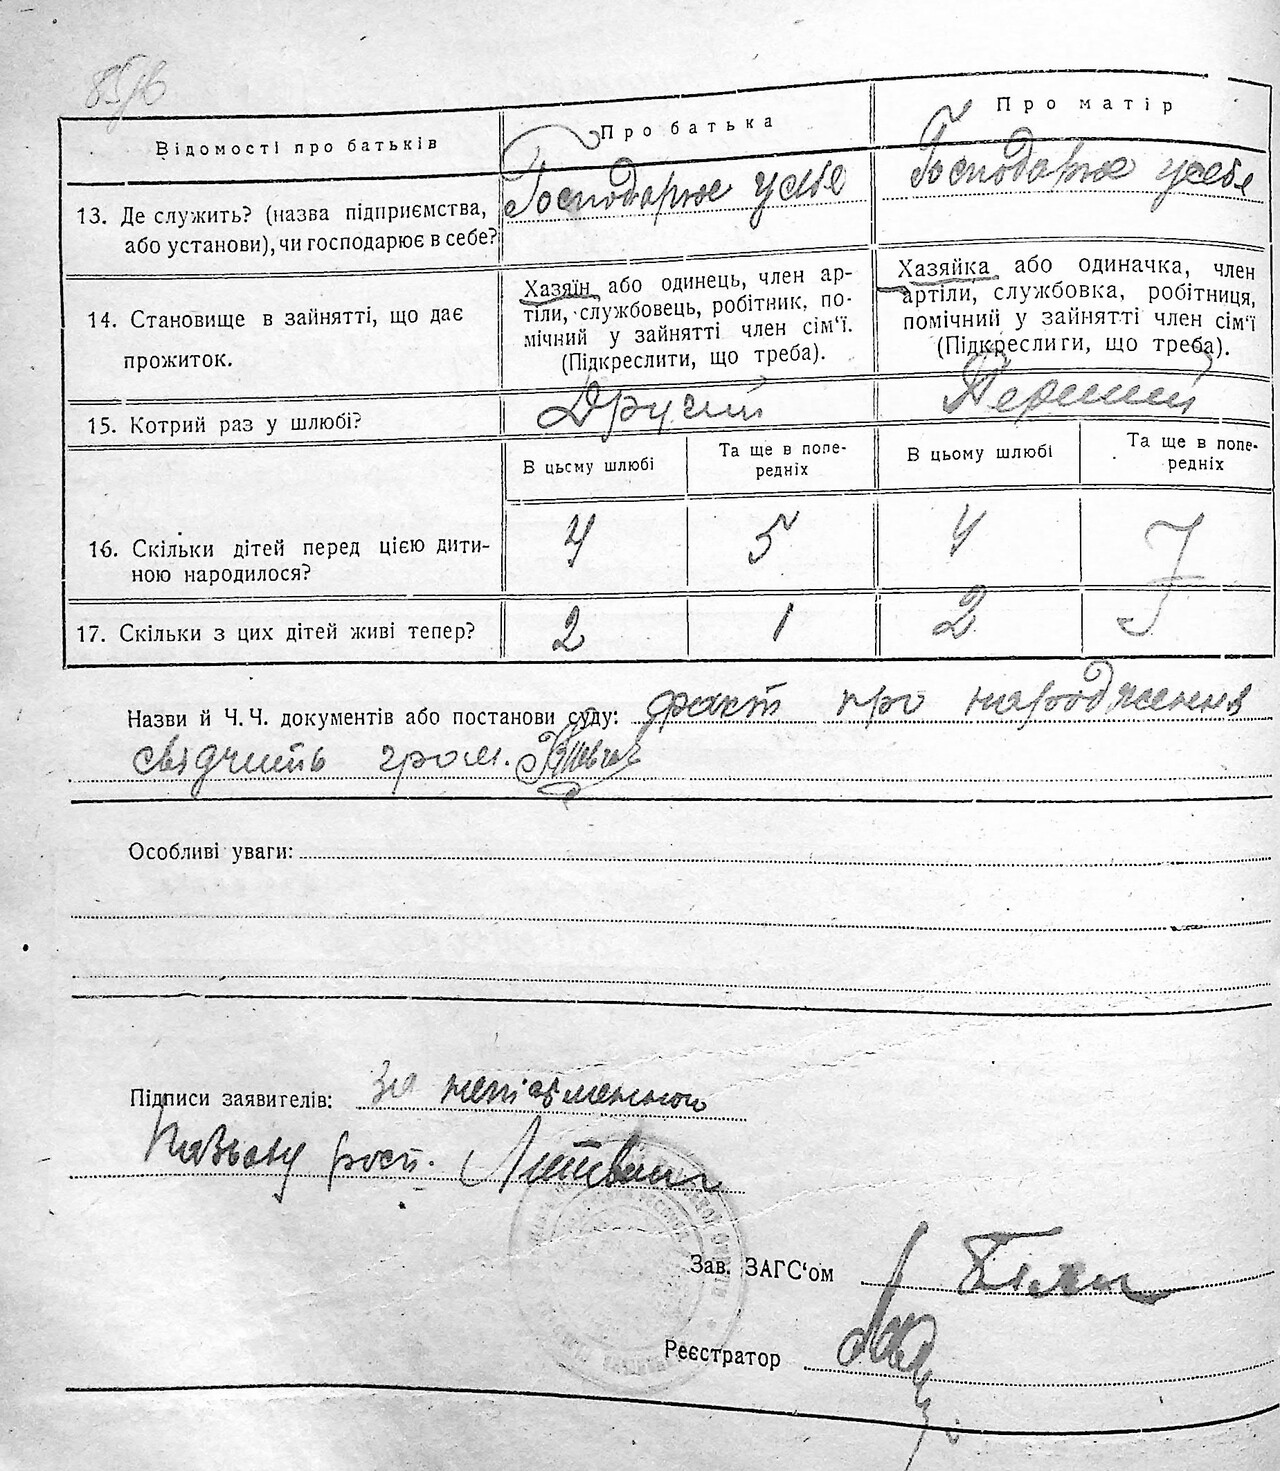 Відомості про батьків
Про батька
Про матір
13. Де служить? (назва підприємства,
або установи), чи господарює в себе?
Господарює у себе
Господарює у себе
14. Становище в зайнятті, що дає
прожиток.
Хазяїн або одинець, член ар-
тіли, службовець, робітник, по-
мічний у зайнятті член сім'ї.
(Підкреслити, що треба).
Хазяйка або одиначка, член
артіли, службовка, робітниця,
помічний у зайнятті член сім'ї
(Підкреслити, що треба).
15. Котрий раз у шлюбі?
Другий
Перший
В цьому шлюбі
Та ще в попе-
редніх
В цьому шлюбі
Та ще в попе-
редніх
16. Скільки дітей перед цією дити-
ною народилося?
4
5
4
17. Скільки з цих дітей живі тепер?
2
1
2
Назви й Ч. Ч. документів або постанови суду: факт про народження
свідчить гром.
Особливі уваги:
Підписи заявителів: за неписьменного
розп. Литвин
Зав. ЗАГС'ом
Реєстратор